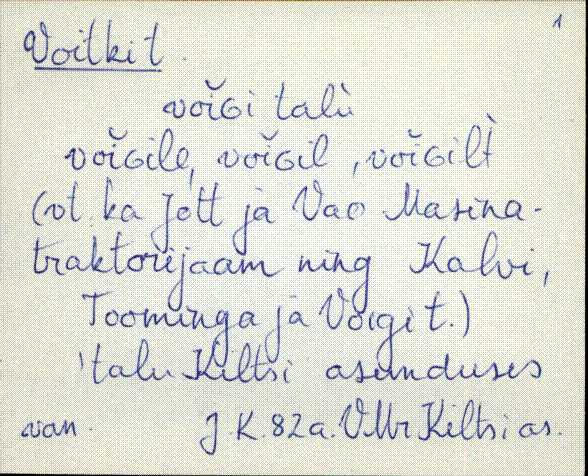 1
Voitki t.
voĭɢi talù
voĭɢile, voĭɢil, voĭɢilt̀
(vt. ka Jott ja Vao Masina-
traktorijaam ning Kalvi,
Toominga ja Voigi t.)
'talu Kiltsi asunduses
van. J.K. 82 a. VMr Kiltsi as.